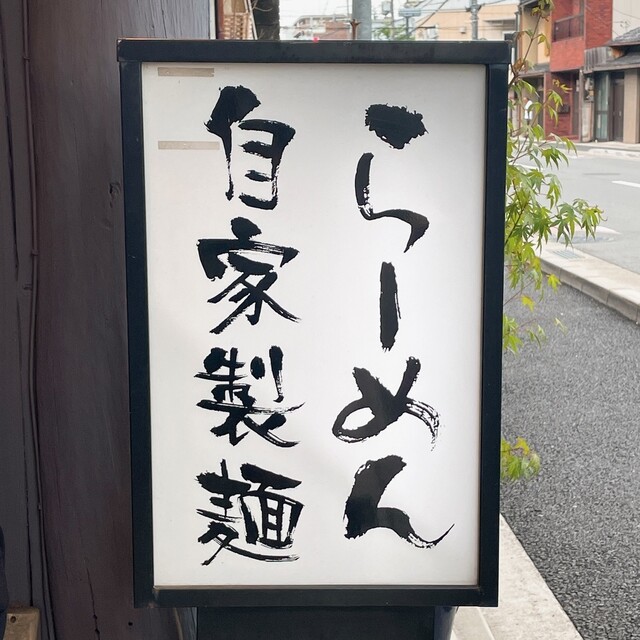 らーめん
自家製麺